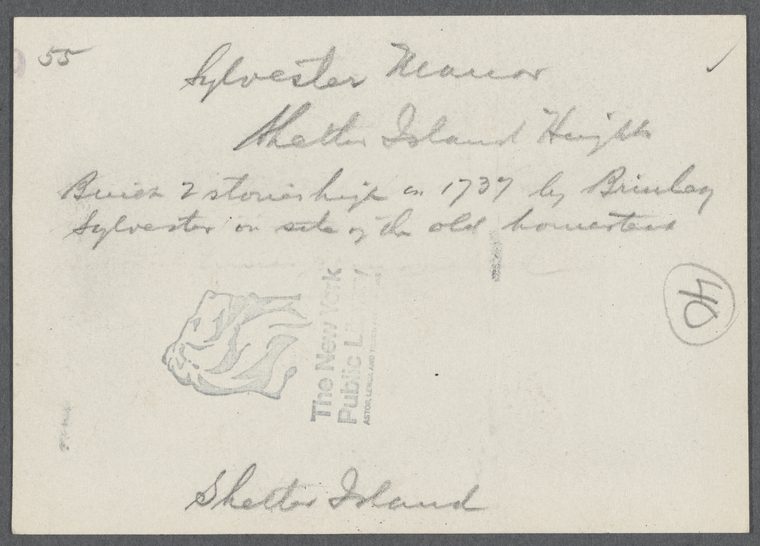 55
Sylvester Manor
Shelter Island Heights
Built 2 stories high in 1737 by Brinley
Sylvester on site of the old homestead
40
The New York
Public Library
ASTOR, LENOX AND TILDEN FOUNDATIONS
Shelter Island